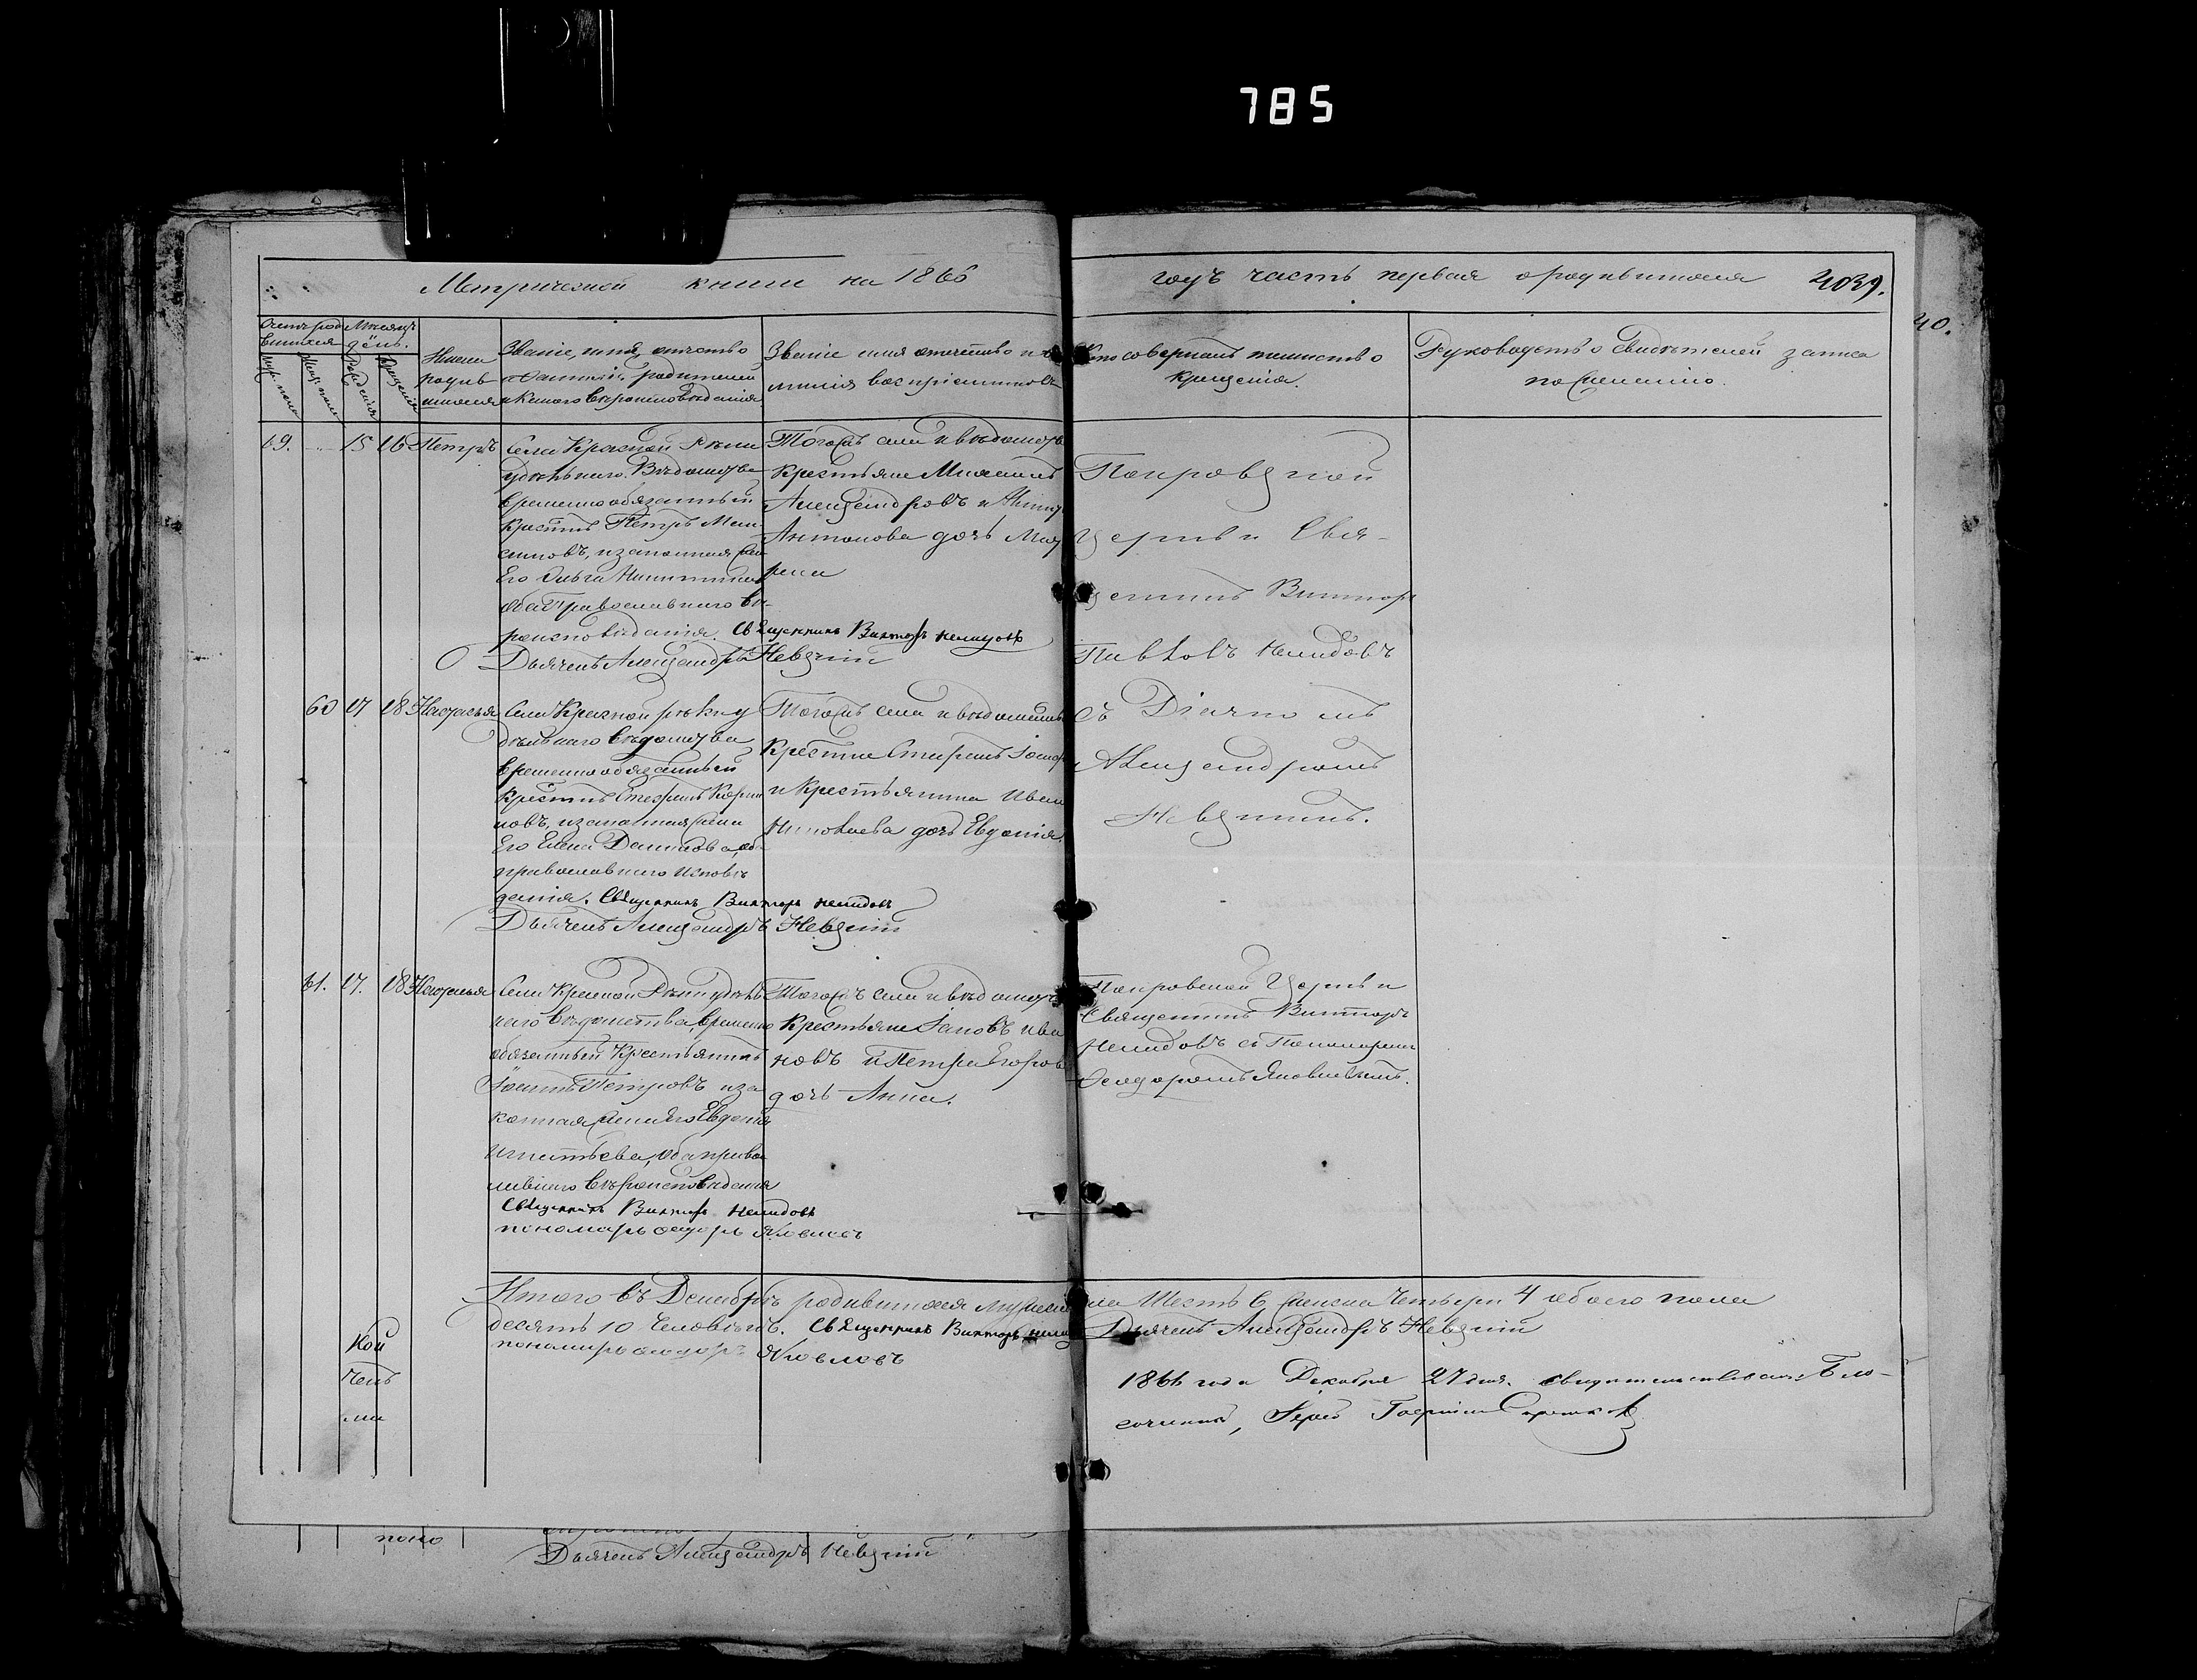 785
Метрической книги на 1866 годъ часть первая о родившихся 4039.
40.
Счетъ родившихся
Муж. пола
Жен. пола
Мѣсяцъ день.
Рожденія
Крещенія
Имена родившихся
Званіе, имя, отчество
и фамилія родителей
и какого вѣроисповѣданія
Званіе имя отчество и фамилія воспріемниковъ
Кто совершалъ таинство
крещенія.
Руководство свидѣтелей записи
по желанію.
59. 15 16 Петръ
Села Красной Рѣки
удѣльнаго Вѣдомства
временнообязанный
крестнъ Петръ Мак-
симовъ, и законная жена
Его Ольга Никитина
оба Православнаго вѣ-
роисповѣданія. Священникъ Викторъ Нелидовъ
Дьячекъ Александръ Невскій
Тогожъ села и вѣдомства
крестьяне Михаилъ
Александровъ и
Антонова дочь
Покровской
церкви Свя-
щенникъ Викторъ
Нелидовъ
съ Діячкомъ
Александромъ
Невскимъ.
60 17 18 Настасья
Села Красной рѣки у
дѣльнаго вѣдомства
временнообязанный
крестнъ
новъ, и законная жена
Его Елена Данилова, об
православнаго исповѣ
данія. Священникъ Викторъ Нелидовъ
Дьячекъ Александръ Невскій
Тогожъ села и вѣдомства
крестне
и крестьянина Иван
Николаева дочь Евдокія.
61. 17. 18 Настасья
Села Красной Рѣки удѣль
наго вѣдомства, временно
обязанный Крестьянинъ
Петровъ и за
конная жена Его Евдокія
Игнатьева, оба право
славнаго вѣроисповѣданія
Священникъ Викторъ Нелидовъ
пономарь Федоръ Яковлевъ
Тогожъ села и вѣдомств
Крестьяне Іаковъ Ива
новъ и Петра Егоров
дочь Анна.
Покровской Церкви
Священникъ Викторъ
Нелидовъ съ Пономаремъ
Феодоромъ Яковлевымъ.
Итого въ Декабрѣ родившихся мужеска пола Шесть 6, женска Четыре 4 обоего пола
десять 10 Человѣкъ. Священникъ Викторъ Нелид Дьячекъ Александръ Невскій
пономарь Федоръ Яковлевъ
кой
чень
ми
1866 года Декабря 27 дня. свидѣтельствовалъ: Бла-
гочинный, Іерей
поно
Дьячекъ Александръ Невскій